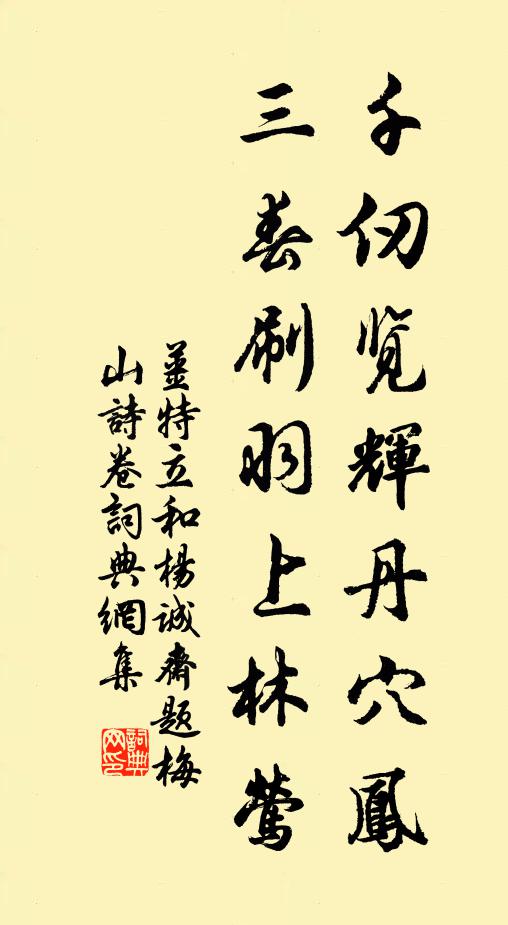 千仞览輝丹穴鳳
三春刷羽上林鶯
姜特立和楊诚齋題梅
山詩卷詞典網集
詞典
网印